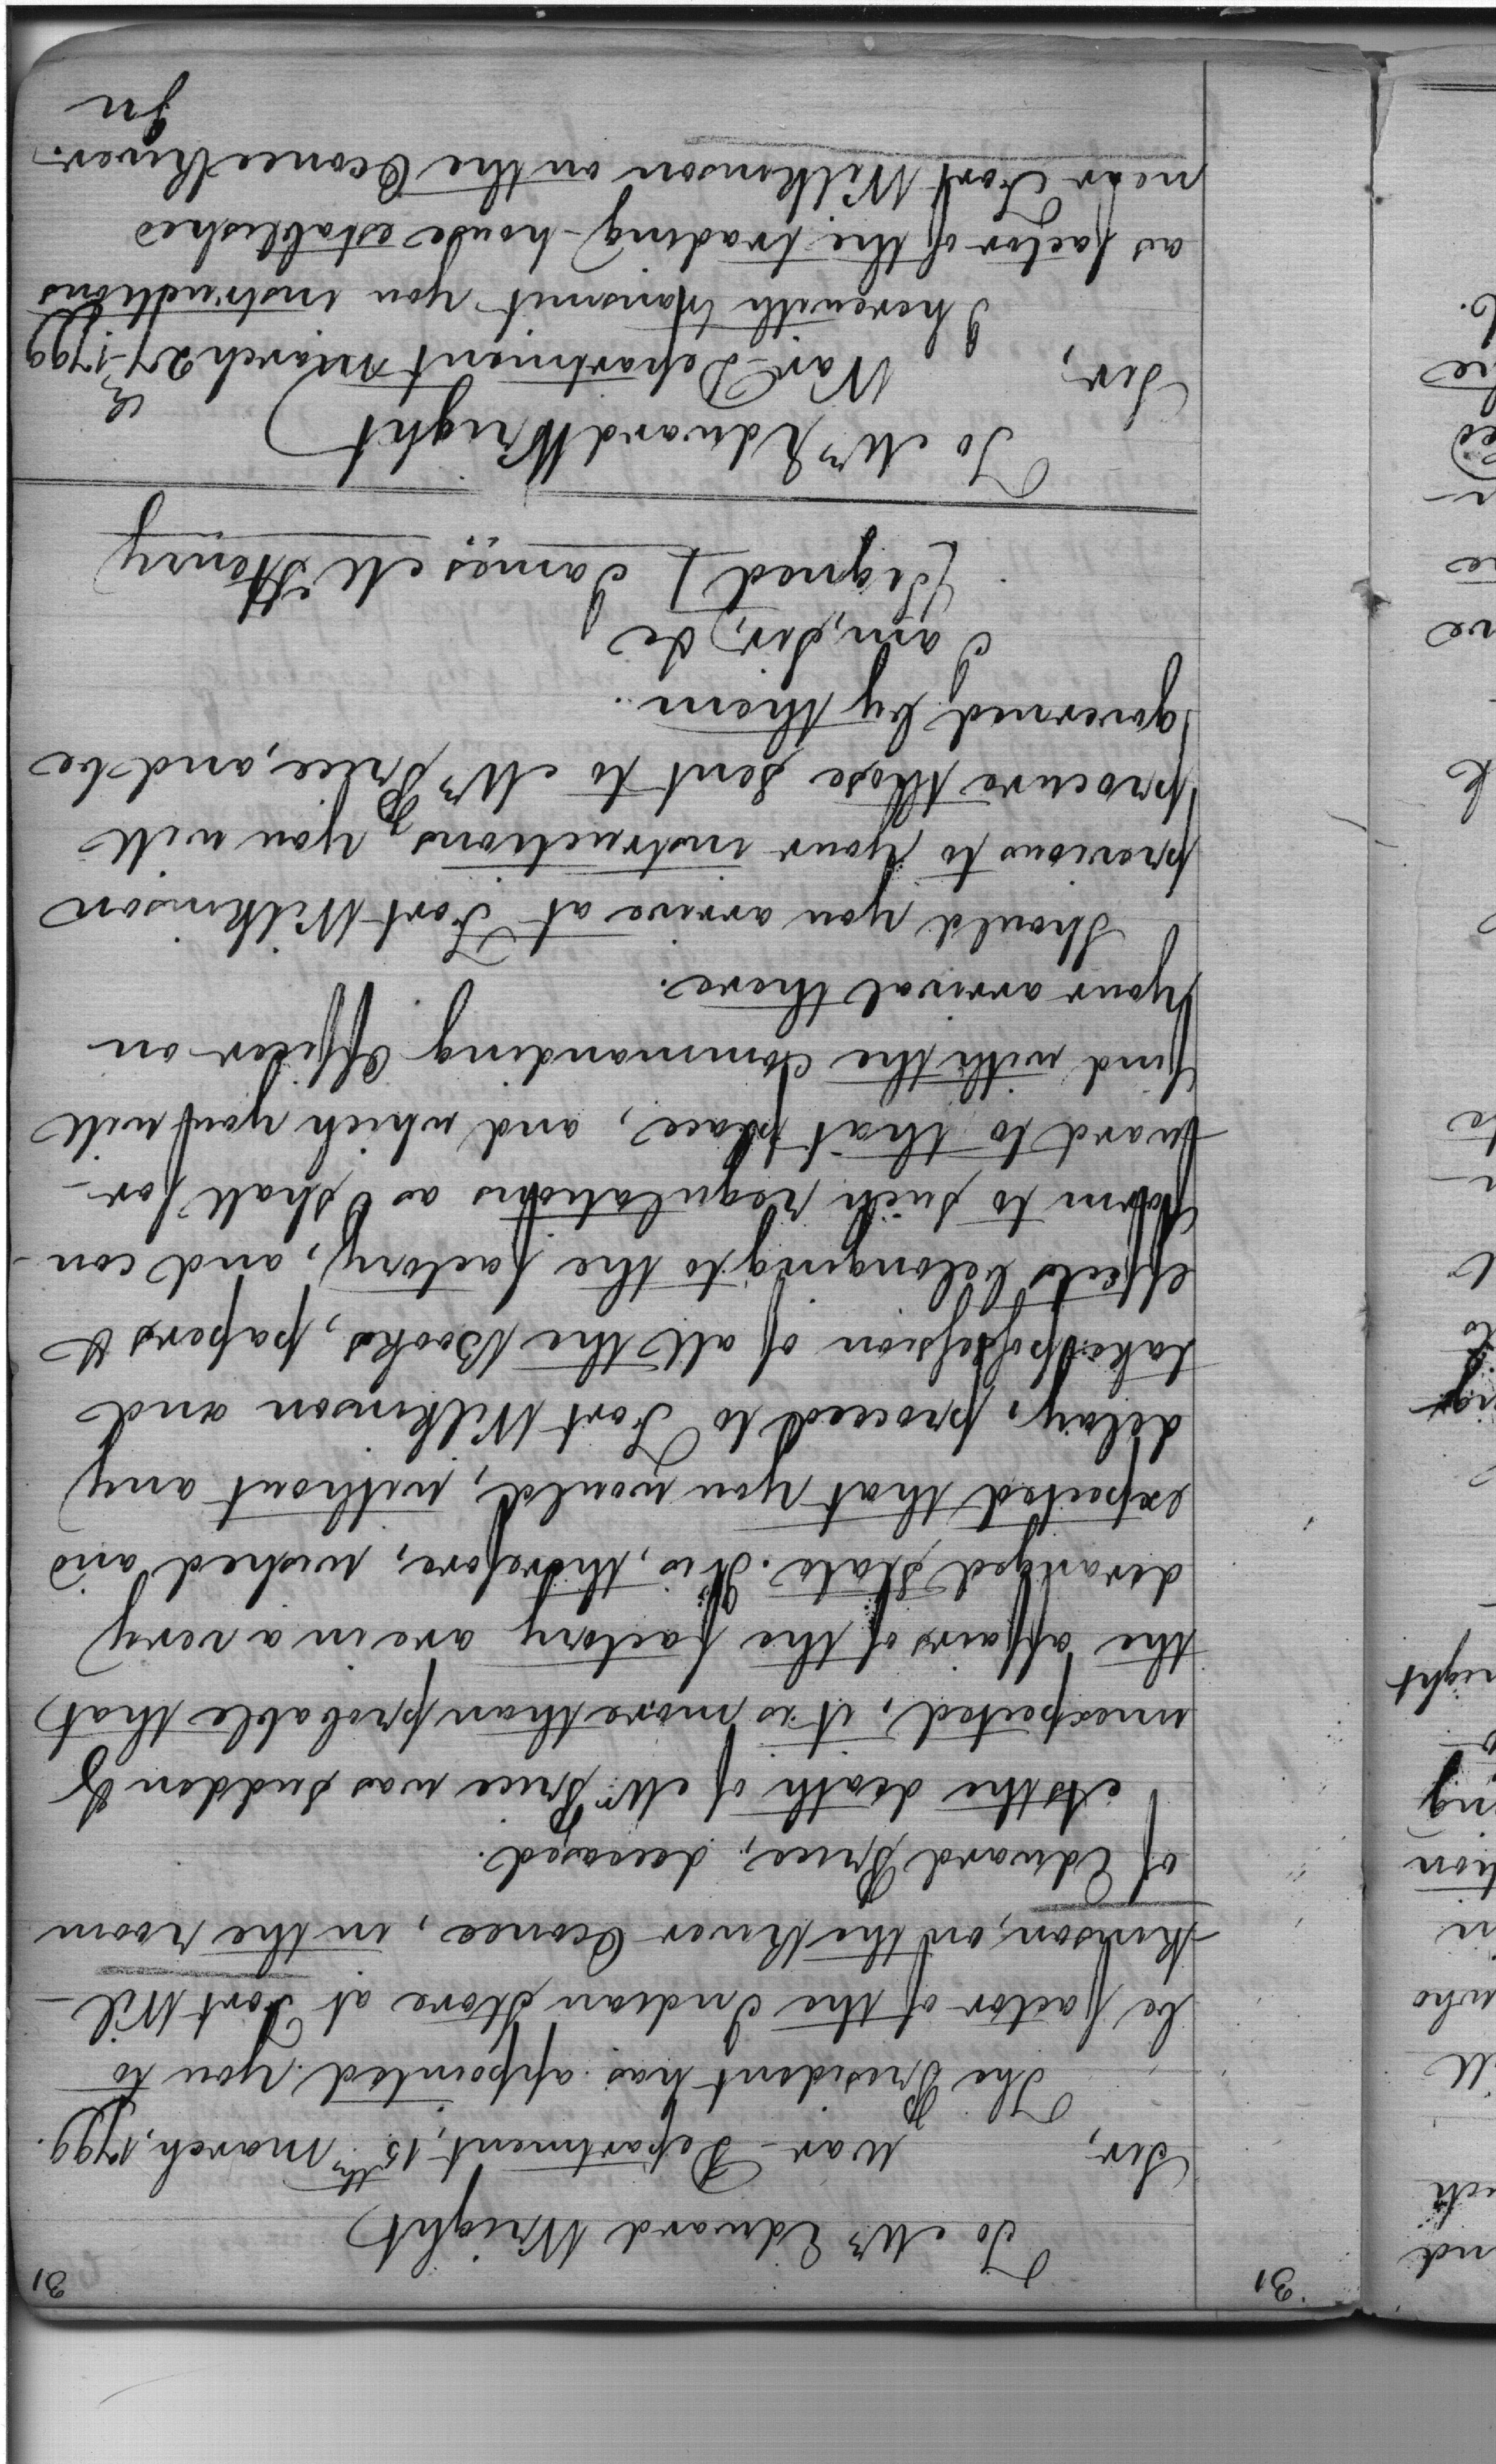 31
31
To Mr Edward Wright
Sir,
War-Department, 15th March, 1799.
The President has appointed you to
be factor of the Indian Store at Fort Wil-
kinson, on the River Oconee, in the room
of Edward Price, deceased.
As the death of Mr Price was sudden &
unexpected, it is more than probable that
the affairs of the factory are in a very
deranged state. It is, therefore, wished and
expected that you would, without any
delay, proceed to Fort Wilkinson and
take possession of all the Books, papers &
effects belonging to the factory, and con-
form to such regulations as I shall for-
ward to that place, and which you will
find with the Commanding Officer on
your arrival there.
Should you arrive at Fort Wilkinson
previous to your instructions, you will
procure those sent to Mr Price, and be
governed by them.
I am, Sir, &c
[Signed] James McHenry
To Mr Edward Wright
Sir,
War-Department March 27th 1799
I herewith transmit you instructions
as factor of the trading-house established
near Fort Wilkinson on the Oconee River.
In